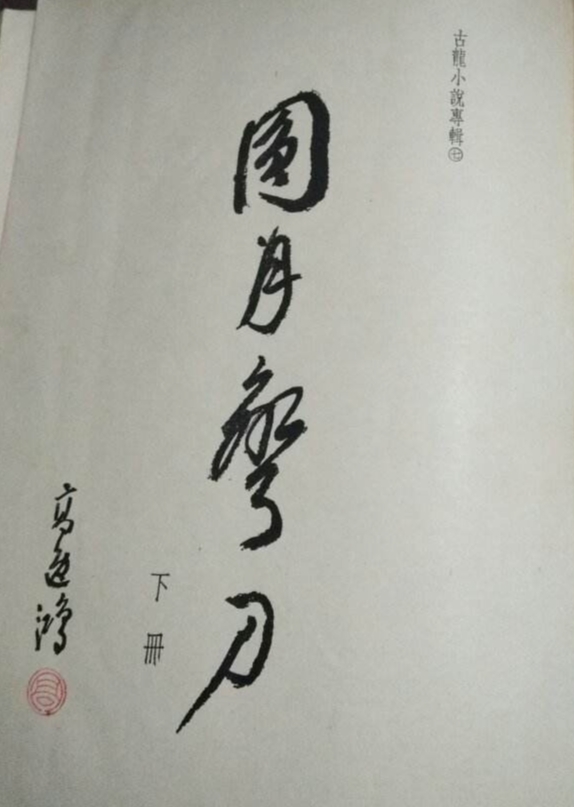 古龍小說專輯㊆
圓月彎刀
下冊
高逸鴻